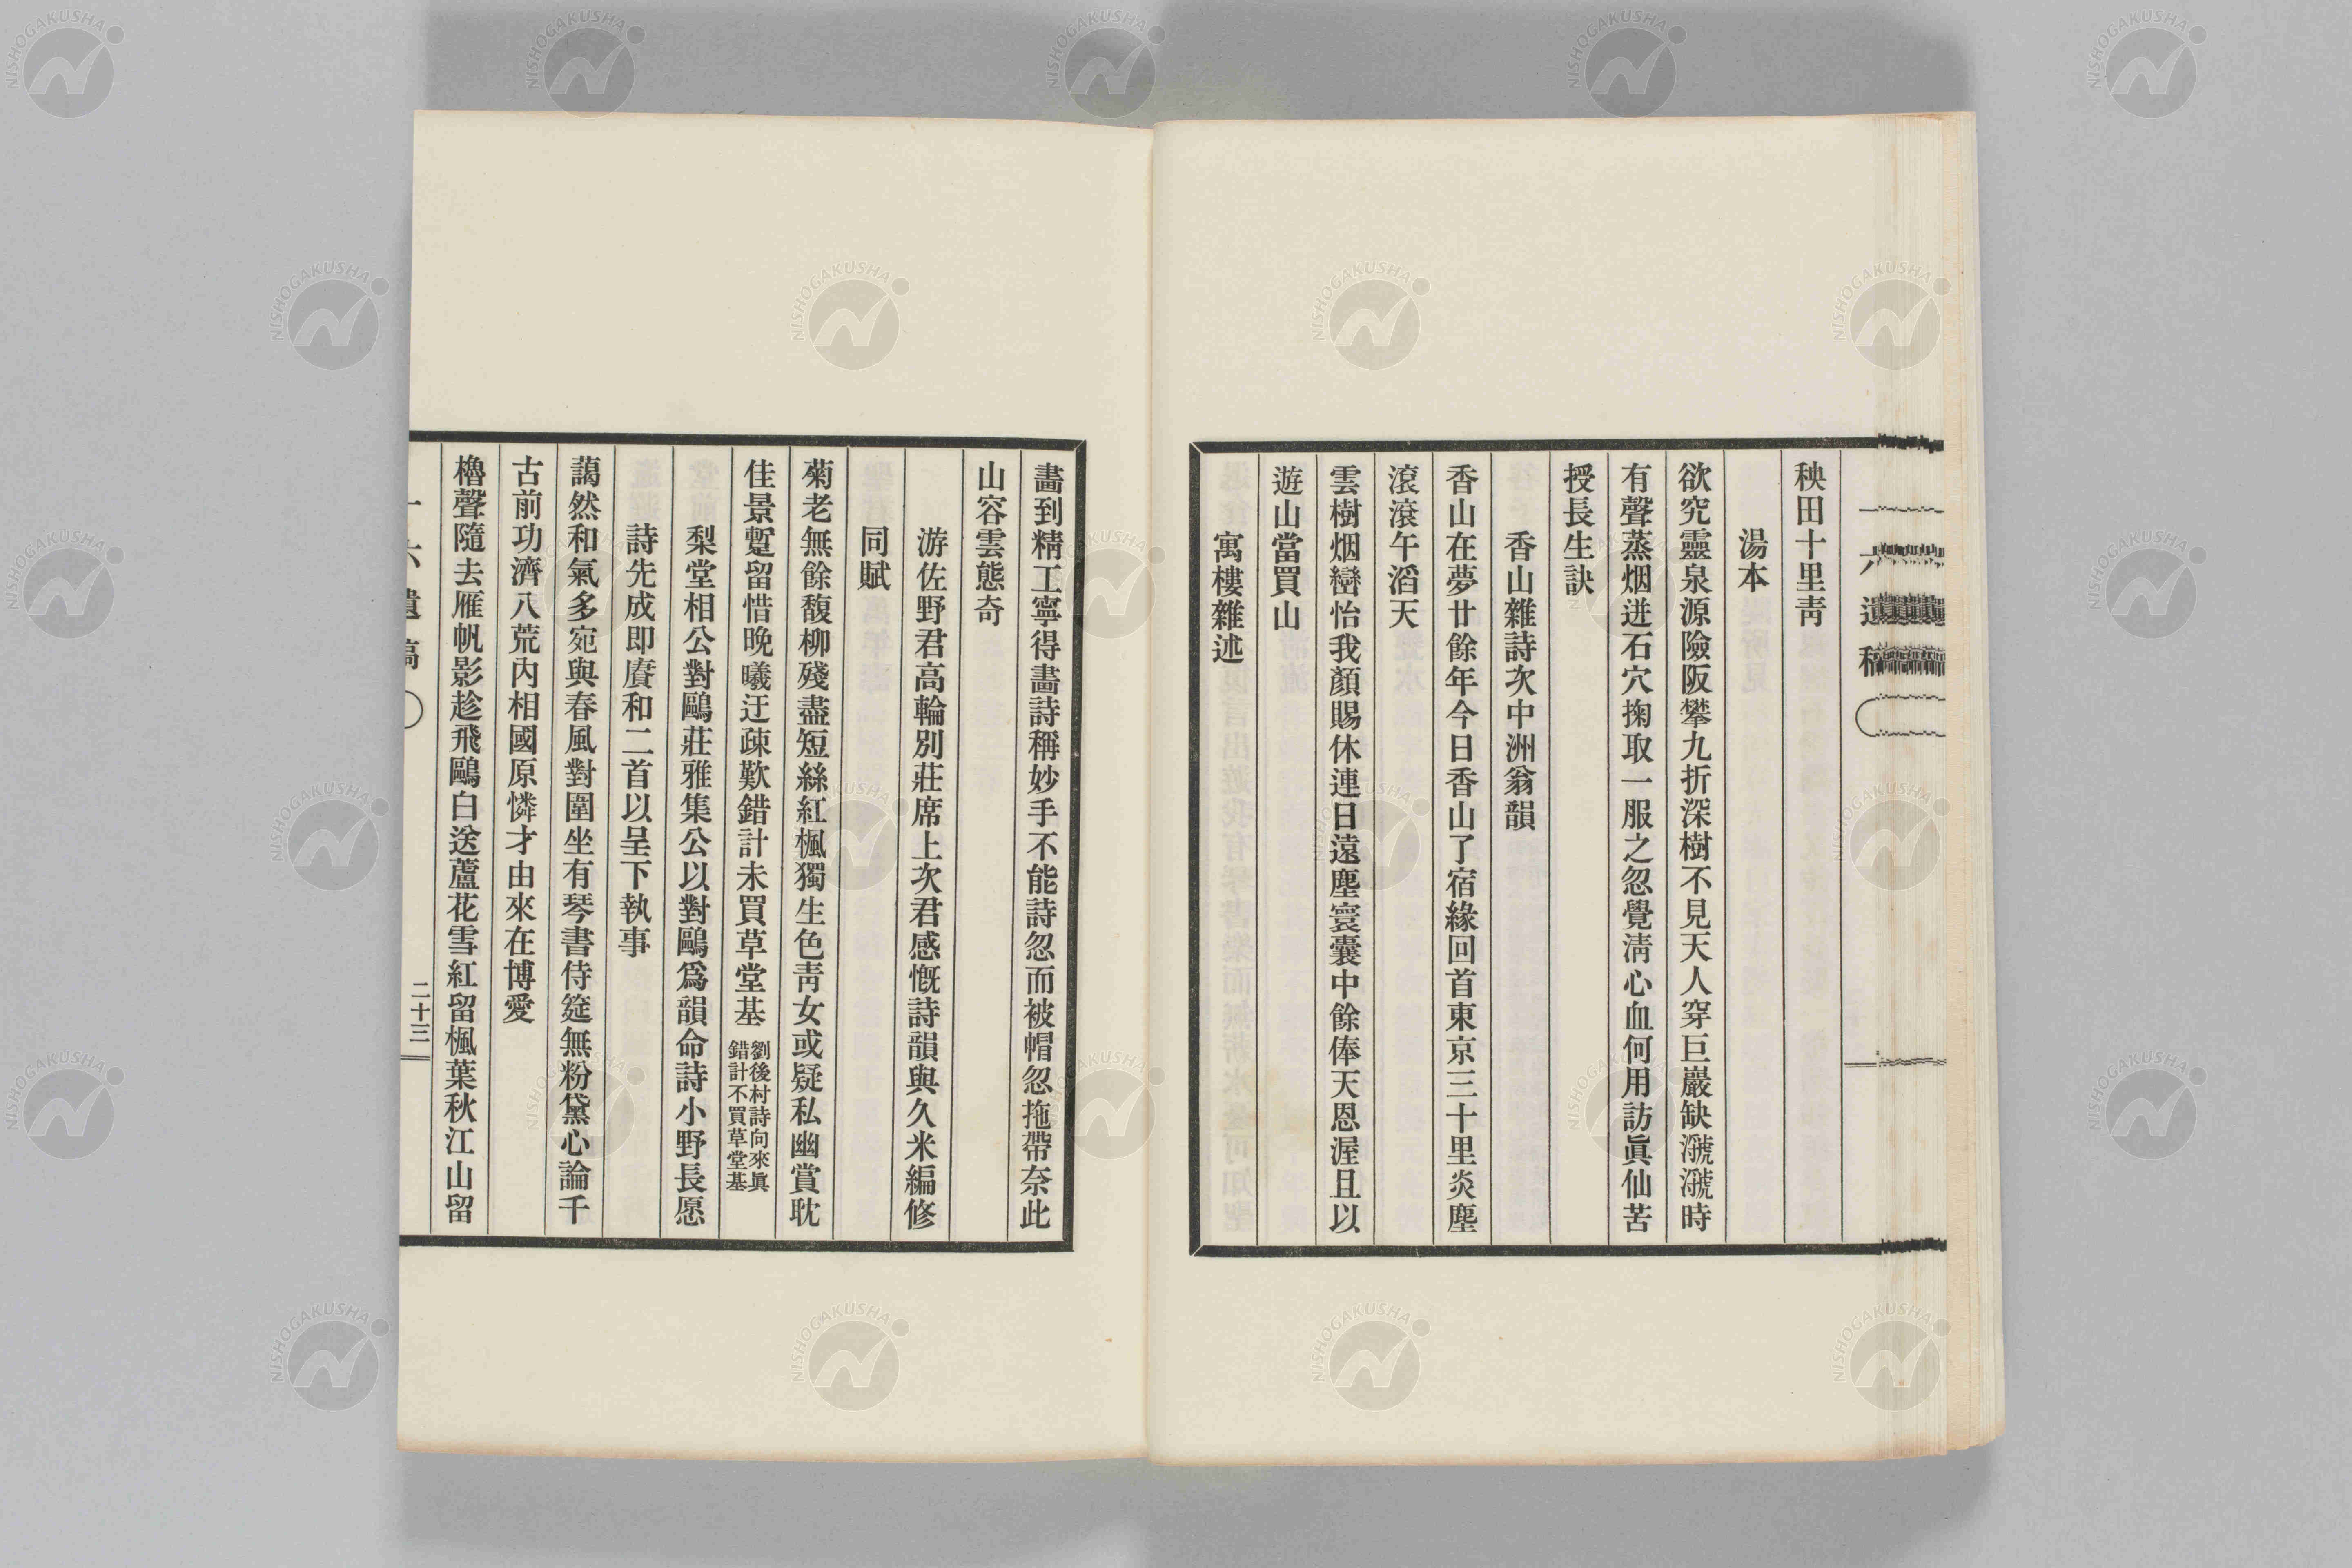 秧田十里靑
湯本
欲究靈泉源險阪攀九折深樹不見天人穿巨巖缺㶁㶁時
有聲蒸烟迸石穴掬取一服之忽覺淸心血何用訪眞仙苦
授長生訣
香山雜詩次中洲翁韻
香山在夢廿餘年今日香山了宿緣回首東京三十里炎塵
滾滾午滔天
雲樹烟巒怡我顏賜休連日遠塵寰囊中餘俸天恩渥且以
遊山當買山
寓樓雜述
畵到精工寧得畵詩稱妙手不能詩忽而被帽忽拖帶奈此
山容雲態奇
游佐野君高輪別莊席上次君感慨詩韻與久米編修
同賦
菊老無餘馥柳殘盡短絲紅楓獨生色靑女或疑私幽賞耽
佳景蹔留惜晚曦迂疎歎錯計未買草堂基
劉後村詩向來眞
錯計不買草堂基
梨堂相公對鷗莊雅集公以對鷗爲韻命詩小野長愿
詩先成即賡和二首以呈下執事
藹然和氣多宛與春風對圍坐有琴書侍筵無粉黛心論千
古前功濟八荒內相國原憐才由來在博愛
櫓聲隨去雁帆影趁飛鷗白送蘆花雪紅留楓葉秋江山留
二十三
NISHOGAKUSHA